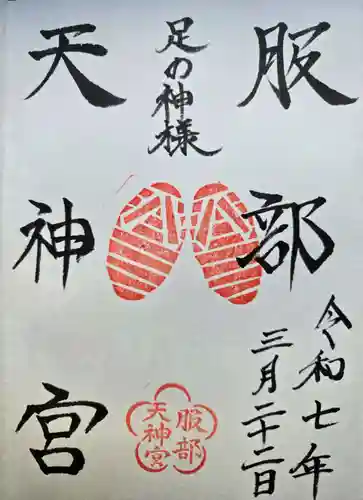 服部
足の神様
天神宮
令和七年
三月二十二日
服部
天神宮